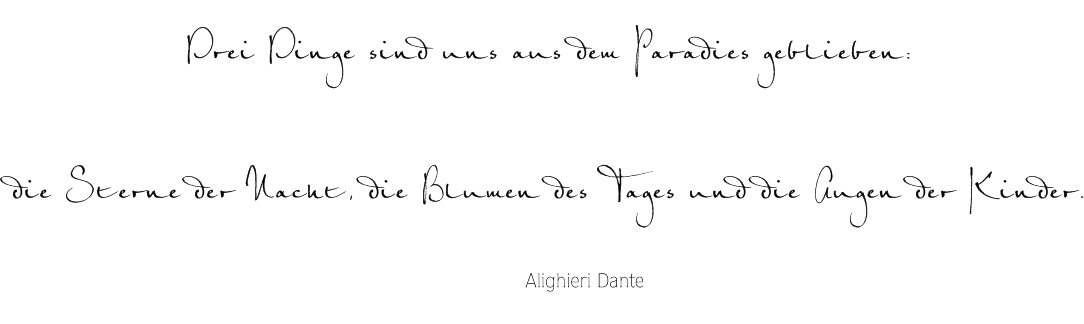 Drei Dinge sind uns aus dem Paradies geblieben:
die Sterne der Nacht, die Blumen des Tages und die Augen der Kinder.
Alighieri Dante